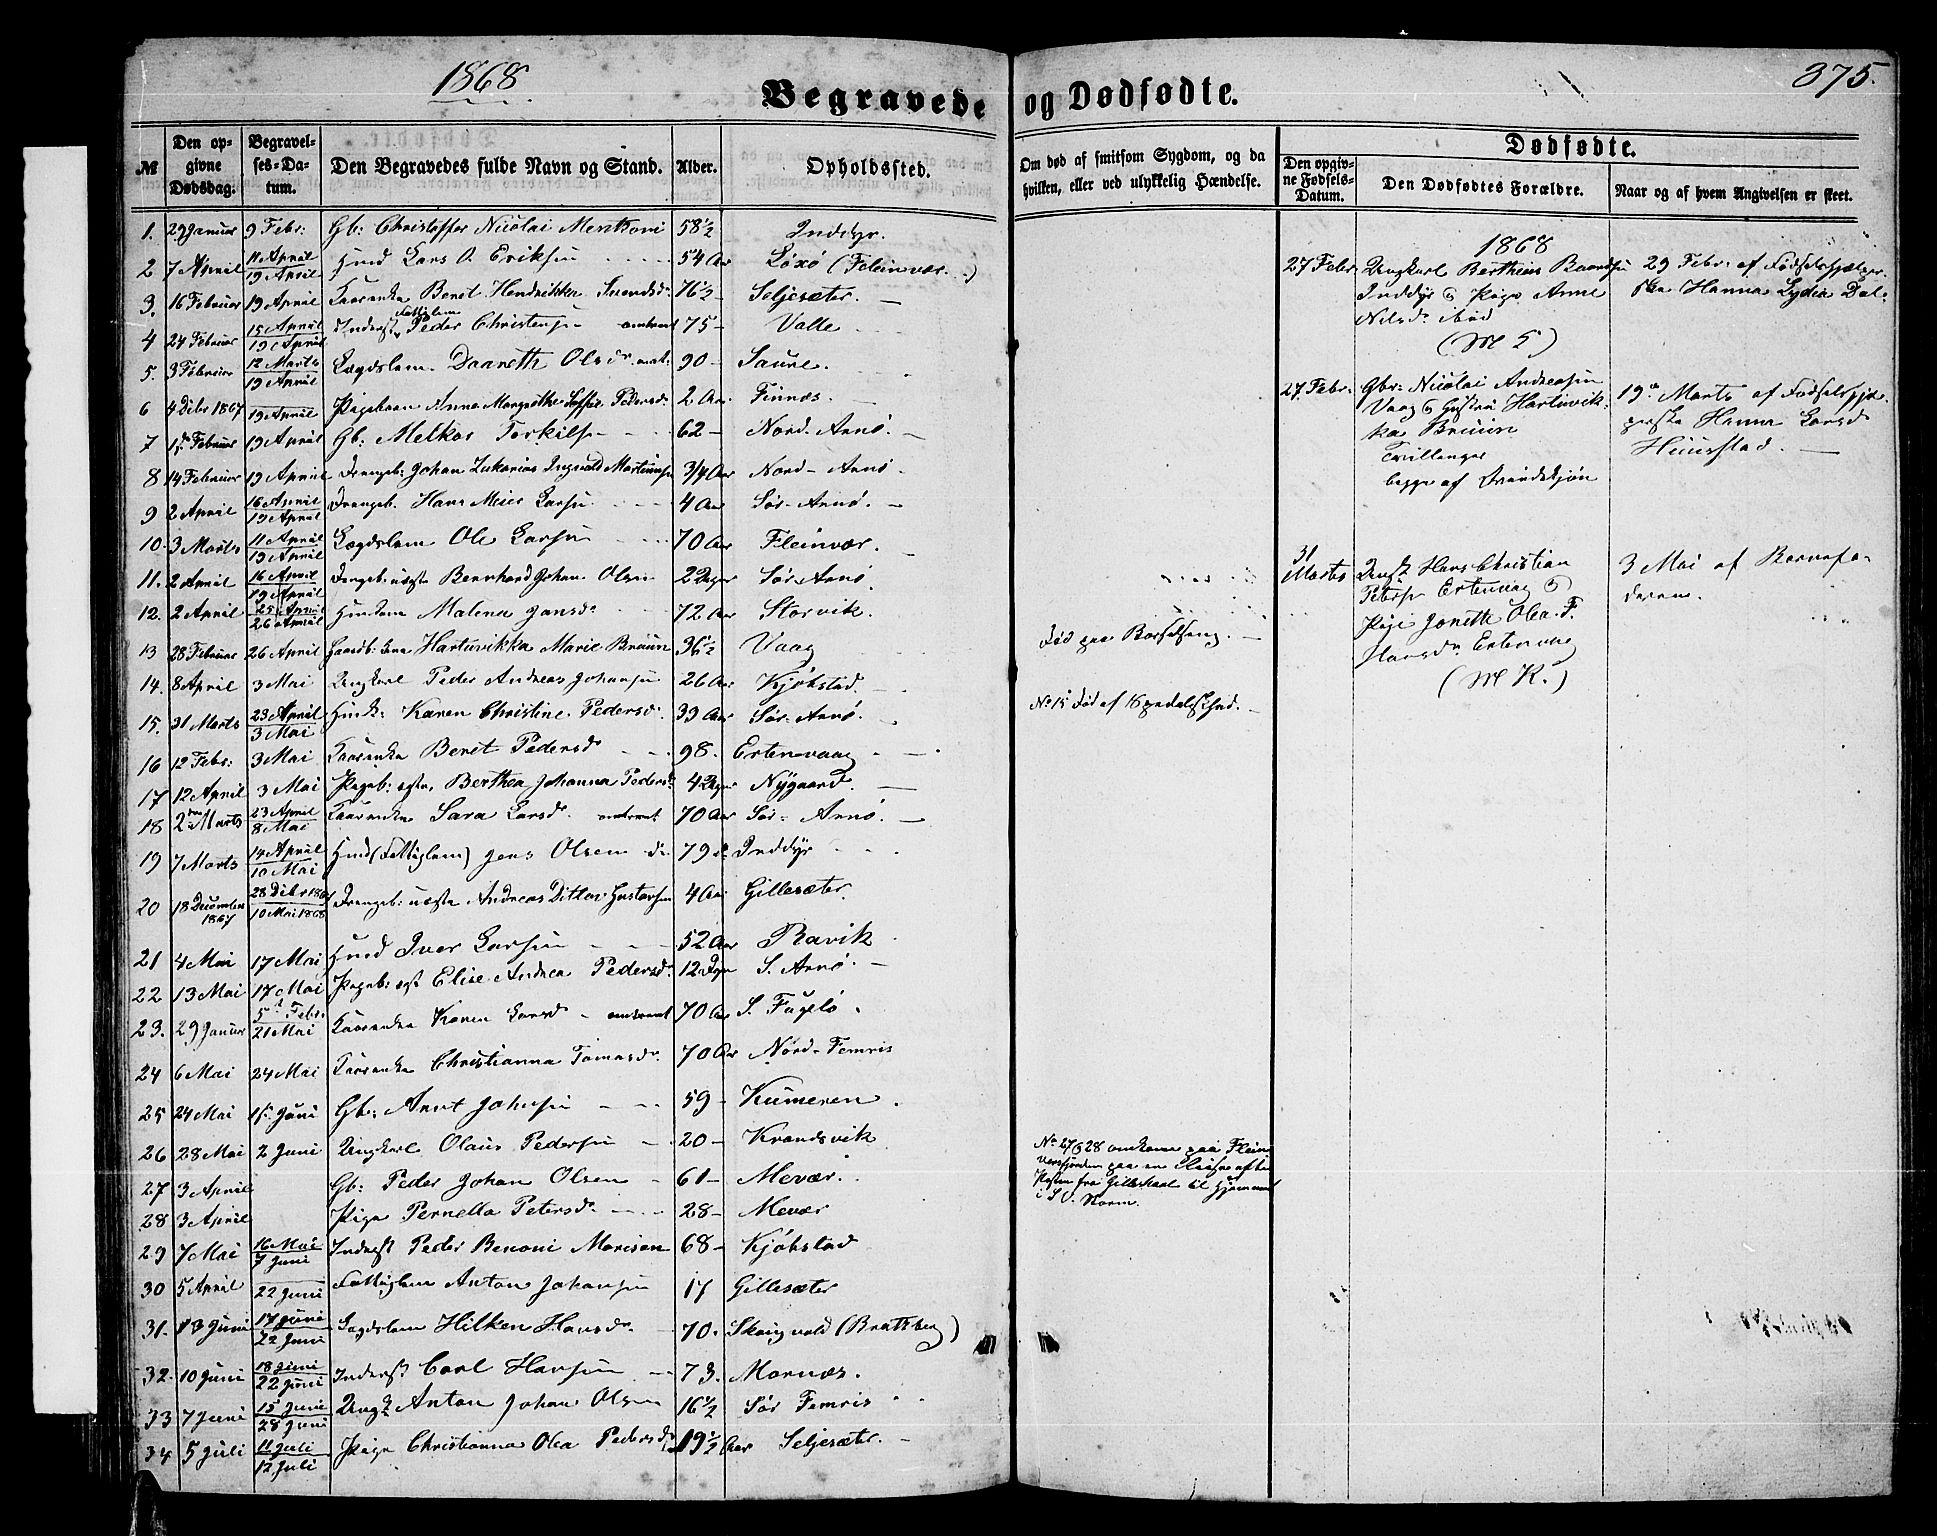 1868
Begravede og Dødfødte.
375.
№
Den opgivne Dødsdag.
Begravelses-Datum.
Den Begravedes fulde Navn og Stand.
Alder.
Opholdssted.
Om død af smitsom Sygdom, og da hvilken, eller ved ulykkelig Hændelse.
Dødfødte.
Den opgivne Fødsels-Datum.
Den Dødfødtes Forældre.
Naar og af hvem Angivelsen er skeet.
1. 29 Januar 9 Febr: Gb: Christoffer Nicolai Mentzoni 58½ Inddyr.
2 7 April 11 April 19 April Hmd Lars O. Eriksen 54 Aar Löxö (Fleinvær.)
3. 16 Februar 19 April Kaarenke Beret Hendrikka Svendsdr 76½ Seljesæter.
4 24 Februar 15 April 19 April Inderst Fattiglem Peder Christensen omtrent 75 Valle
5. 3 Februar 12 Marts 19 April Lægdslem Daaneth Olsdr omt: 90 Saure.
6 4 Debr 1867 19 April Pigebarn Anna Margrethe Pedersd. 2 Aar Finnæs.
7 15 Februar 19 April Gb: Melkor Torkilsen 62 Nord-Arnö.
8 14 Februar 19 April Drengeb: Johan Zakarias Ingvald Martinusen 3/4 Aar Nord-Arnö.
9 2 April 16 April 19 April Drengeb. Hans Meier Larsen 4 Aar Sör-Arnö.
10. 3 Marts 11 April 19 April Lægdslem Ole Larsen 70 Aar Fleinvær.
11. 2 April 16 April 19 April Drengeb: uægte Bernhard Johan Olsen 2 Dage Sör-Arnö.
12. 2 April 25 April 26 April Huskone Malena Jonsdr 72 Aar Storvik.
13 28 Februar 26 April Gaardb: kone Hartvikka Marie Bruun 36½ Vaag
Död paa Barselseng.
14. 8 April 3 Mai Ungkarl Peder Andreas Johansen 26 Aar Kjöbstad.
15. 31 Marts 23 April 3 Mai Husk: Karen Christine Pedersd. 33 Aar Sör-Arnö.
No 15 död af Spedalskhed.
16 12 Febr: 3 Mai Kaarenke Beret Pedersdr 98. Ertenvaag
17 12 April 3 Mai Pigeb: ægte, Berthea Johanna Pedersd 4 Dage Nygaard.
18 2 Marts 23 April 8 Mai Kaarenke Sara Larsdr. omtrent 70 Aar Sör-Arnö.
19 7 Marts 14 April 10 Mai Hmd (Fattiglem) Jens Olsen do 79 Inddyr
20 18 December 1867 28 Debr 1867 10 Mai 1868 Drengeb: uægte Andreas Ditlov Gustavsen 4 Aar Gillesæter.
21 4 Mai 17 Mai Hmd Iver Larsen 52 Aar Ravik
22 13 Mai 17 Mai Pigeb: ægt Elise Andrea Pedersdr. 12 Dage S. Arnö.
23. 29 Januar 5 Febr. 21 Mai Kaarenke Karen Larsdr omtrent 70 Aar S. Fugelö.
24 6 Mai 24 Mai Kaarenke Christianna Tomasdr 70 Aar Nord-Femris
25 24 Mai 15 Juni Gb: Arnt Johnsen 59 Kumeren.
26 28 Mai 2 Juni Ungkarl Olaus Pedersen 20 Krandsvik
27 3 April Gb: Peder Johan Olsen 61 Mevær.
28 3 April Pige Pernella Petersdr 28 Mevær
No 27 & 28 omkomne paa Fleinværfjorden paa en Reise efter fra Gilleskaal til Hjemmet i S.V. Storm.
29 7 Mai 16 Mai 7 Juni Inderst Peder Benoni Morisen 68 Kjöbstad
30 5 April 22 Juni Fattiglem Anton Johansen 17 Gillesæter
31. 13 Juni 17 Juni 22 Juni Lægdslem Hilken Hansdr. 70. Skaugvold (Bratsberg)
32. 10 Juni 18 Juni 22 Juni Inderst Carl Hansen 73. Mornæs.
33 7 Juni 15 Juni 28 Juni Ungk Anton Johan Olsen 16½ Sör Femris
34 5 Juli 11 Juli 12 Juli Pige Christianna Olea Pedersdr 19½ Aar Seljesæter.
1868
27 Febr. Ungkarl Bertheus Baardsen
Inddyr & Pige Anne
Nilsdr ibid
(M 5)
29 Febr. af Fødselshjælper-
ske Hanna Lydia Dal-
27 Febr: Gbr: Nicolai Andreasen
Vaag & Hustru Hartvik-
ka Bruun
Tvillinger
begge af Qvindekjøn
19de Marts af Fødselshjæ-
perske Hanna Larsdr
Huusstad.
31 Marts Ungk Hans Christian
Petersen Ertenvaag &
Pige Jonette Olea F.
Hansdr Ertenvaag
(M K.)
3 Mai af Barnefa-
deren.